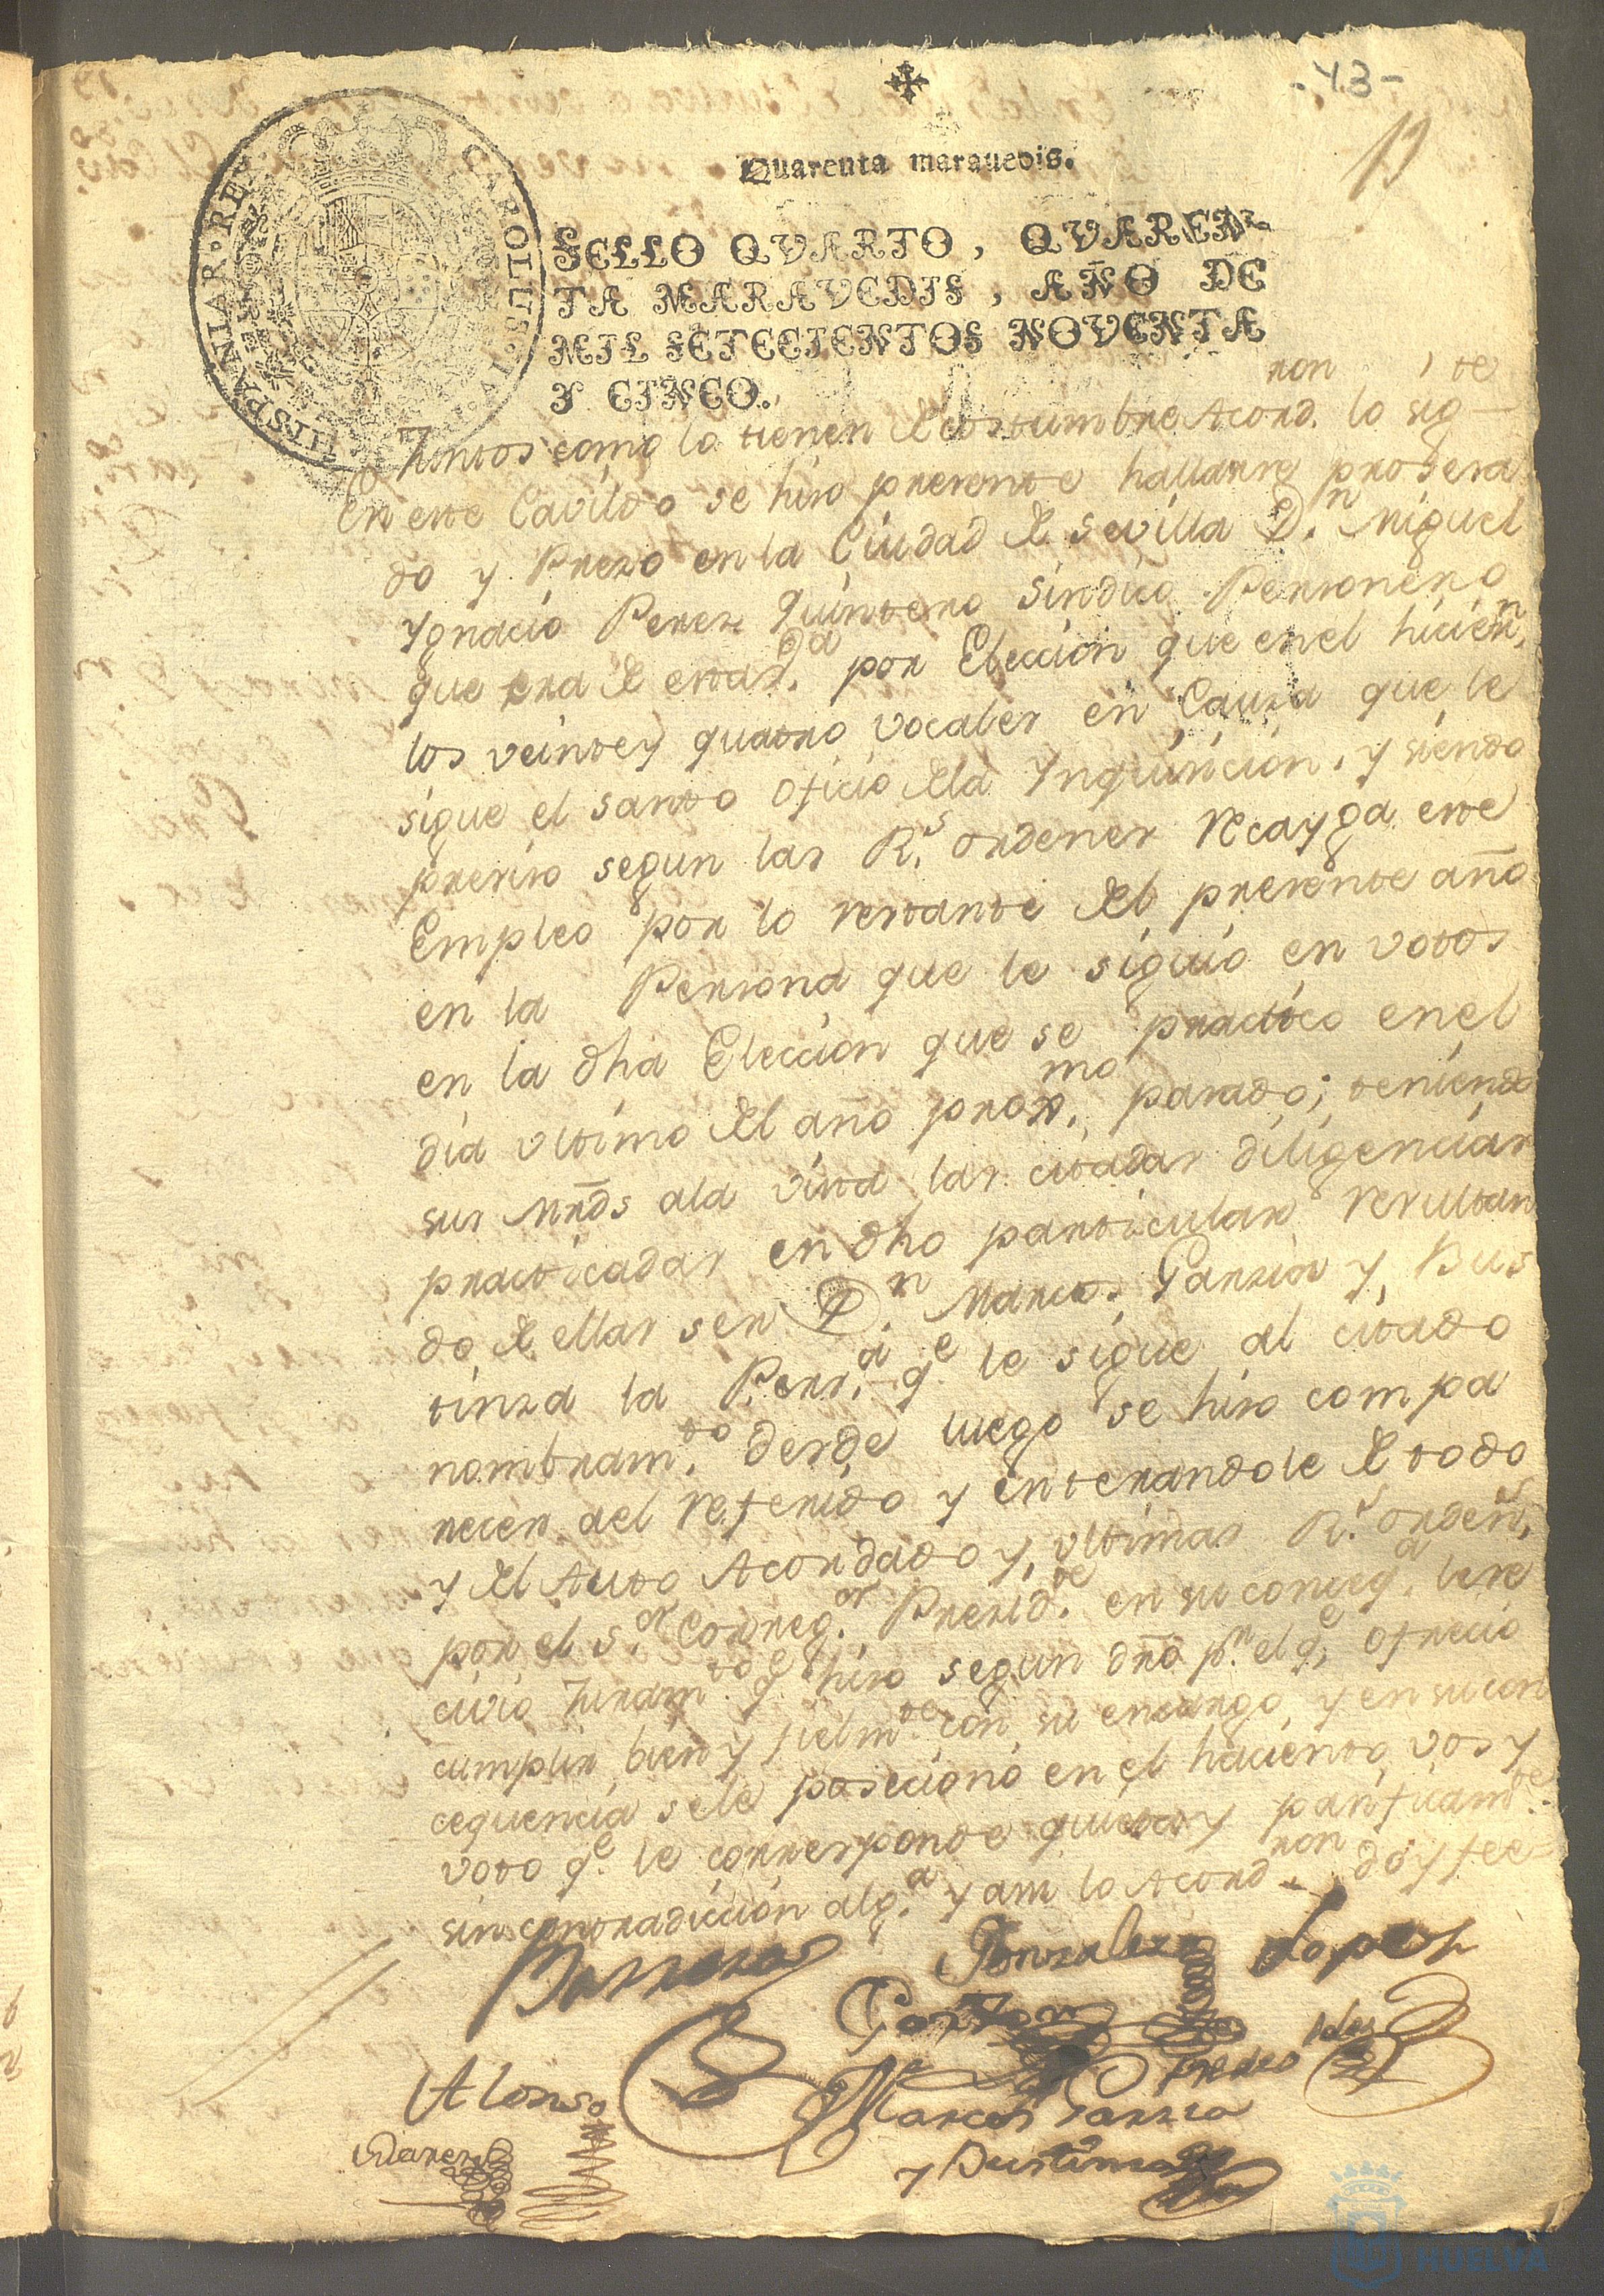 - 43 -
13
Quarenta marauedis.
SELLO QVARTO, QVAREN-
TA MARAVEDIS, AÑO DE
MIL SETECIENTOS NOVENTA
Y CINCO.
CAROLUS IV
HISPANIAR. REX
Juntos como lo tienen de costumbre Acord.ron lo sig.te
En este Cavildo se hiso presente hallarse prosesa
do y Preso en la Ciudad de Sevilla D.n Miguel
Ygnacio Perez Quintero Sindico Personero
que era de esta d por Eleccion que en el hicier.n
los veinte y quatro vocales en Causa que le
sigue el santo oficio de la Ynquisicion, y siendo
presiso segun las R.s ordenes recayga este
Empleo por lo restante del presente año
en la Persona que le siguio en votos
en la dha Eleccion que se practico en el
dia ultimo del año prox.mo pasado; teniendo
sus mrds ala vista las citadas diligencias
practicadas en dho particular resultan
do de ellas ser D.n Marcos Garzia y Bus
tinza la Pers.a q.e le sigue al citado
nombram.to desde luego se hiso compa
recer al referido y enterandole de todo
y del Auto Acordado y ultimas R.s orden.s
por el S.or Correg.or Presid.te en su conseq.a le re
civio Juram.to q.e hiso segun dro p.r el q.e ofrecio
cumplir bien y fielm.te con su encargo, y en su con
cequencia sele posecionó en el haciento, vos y
voto q.e le corresponde quieta y pasificam.te
sin contradiccion alg.a y asi lo Acord.ron doy fee=
Barreras Gonzalez Lopez
Garzon
Alonso Marcos Garzia Prades
Suarez y Bustinza
HUELVA